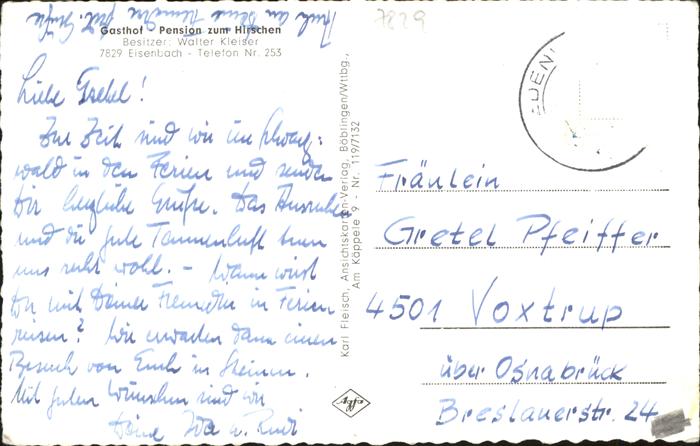 Auch an Deine Freundin frdl. Grüße
7829
Gasthof - Pension zum Hirschen
Besitzer: Walter Kleiser
7829 Eisenbach - Telefon Nr. 253
Liebe Gretel!
Zur Zeit sind wir im Schwarz=
wald in den Ferien und senden
Dir herzliche Grüße. Das Ausruhen
und die gute Tannenluft tun
uns recht wohl. – Wann wirst
Du mit Deiner Freundin in Ferien
reisen? Wir erwarten dann einen
Besuch von Euch in
Mit guten Wünschen sind wir
Deine Ida u. Rudi
Karl Fleisch, Ansichtskarten-Verlag, Böblingen/Wttbg.,
Am Käppele 9 - Nr. 119/7132
Agfa
Fräulein
Gretel Pfeiffer
4501 Voxtrup
über Osnabrück
Breslauerstr. 24